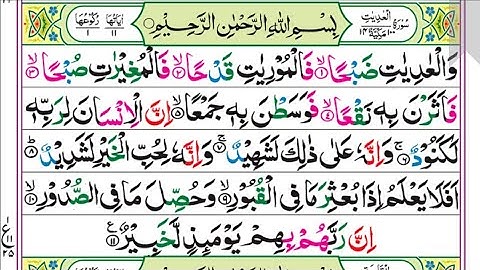 سُوْرَةُ الْعٰدِيٰتِ مَكِّيَّةٌ ١٠٠ ١٤
بِسْمِ اللّٰهِ الرَّحْمٰنِ الرَّحِيْمِ
اٰيَاتُهَا ١١
رُكُوْعُهَا ١
وَالْعٰدِيٰتِ ضَبْحًا ۙ﴿١﴾ فَالْمُوْرِيٰتِ قَدْحًا ۙ﴿٢﴾ فَالْمُغِيْرٰتِ صُبْحًا ۙ﴿٣﴾
فَاَثَرْنَ بِهٖ نَقْعًا ۙ﴿٤﴾ فَوَسَطْنَ بِهٖ جَمْعًا ۙ﴿٥﴾ اِنَّ الْاِنْسَانَ لِرَبِّهٖ
لَكَنُوْدٌ ۚ﴿٦﴾ وَاِنَّهٗ عَلٰى ذٰلِكَ لَشَهِيْدٌ ۚ﴿٧﴾ وَاِنَّهٗ لِحُبِّ الْخَيْرِ لَشَدِيْدٌ ؕ﴿٨﴾
اَفَلَا يَعْلَمُ اِذَا بُعْثِرَ مَا فِى الْقُبُوْرِ ۙ﴿٩﴾ وَحُصِّلَ مَا فِى الصُّدُوْرِ ۙ﴿١٠﴾
اِنَّ رَبَّهُمْ بِهِمْ يَوْمَئِذٍ لَّخَبِيْرٌ ﴿١١﴾
ع ١ ١١ ٢٥